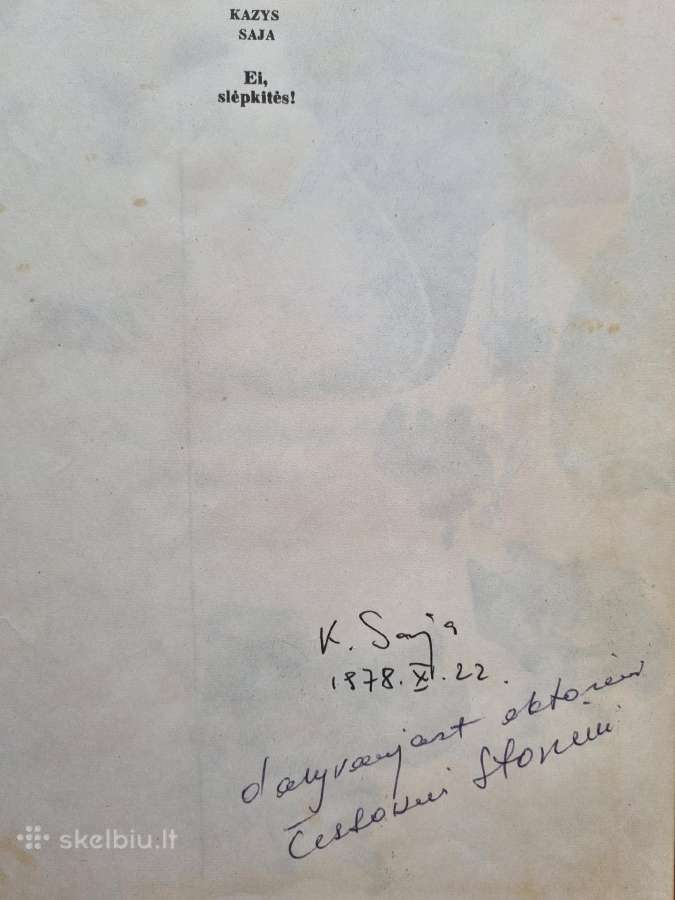 KAZYS
SAJA
Ei,
slėpkitės!
K. Saja
1978.XI.22.
dalyvaujant aktoriui
Česlovui Stoniui
skelbiu.lt